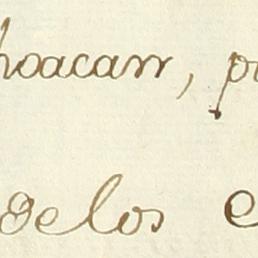 hoacan, p
gelos e